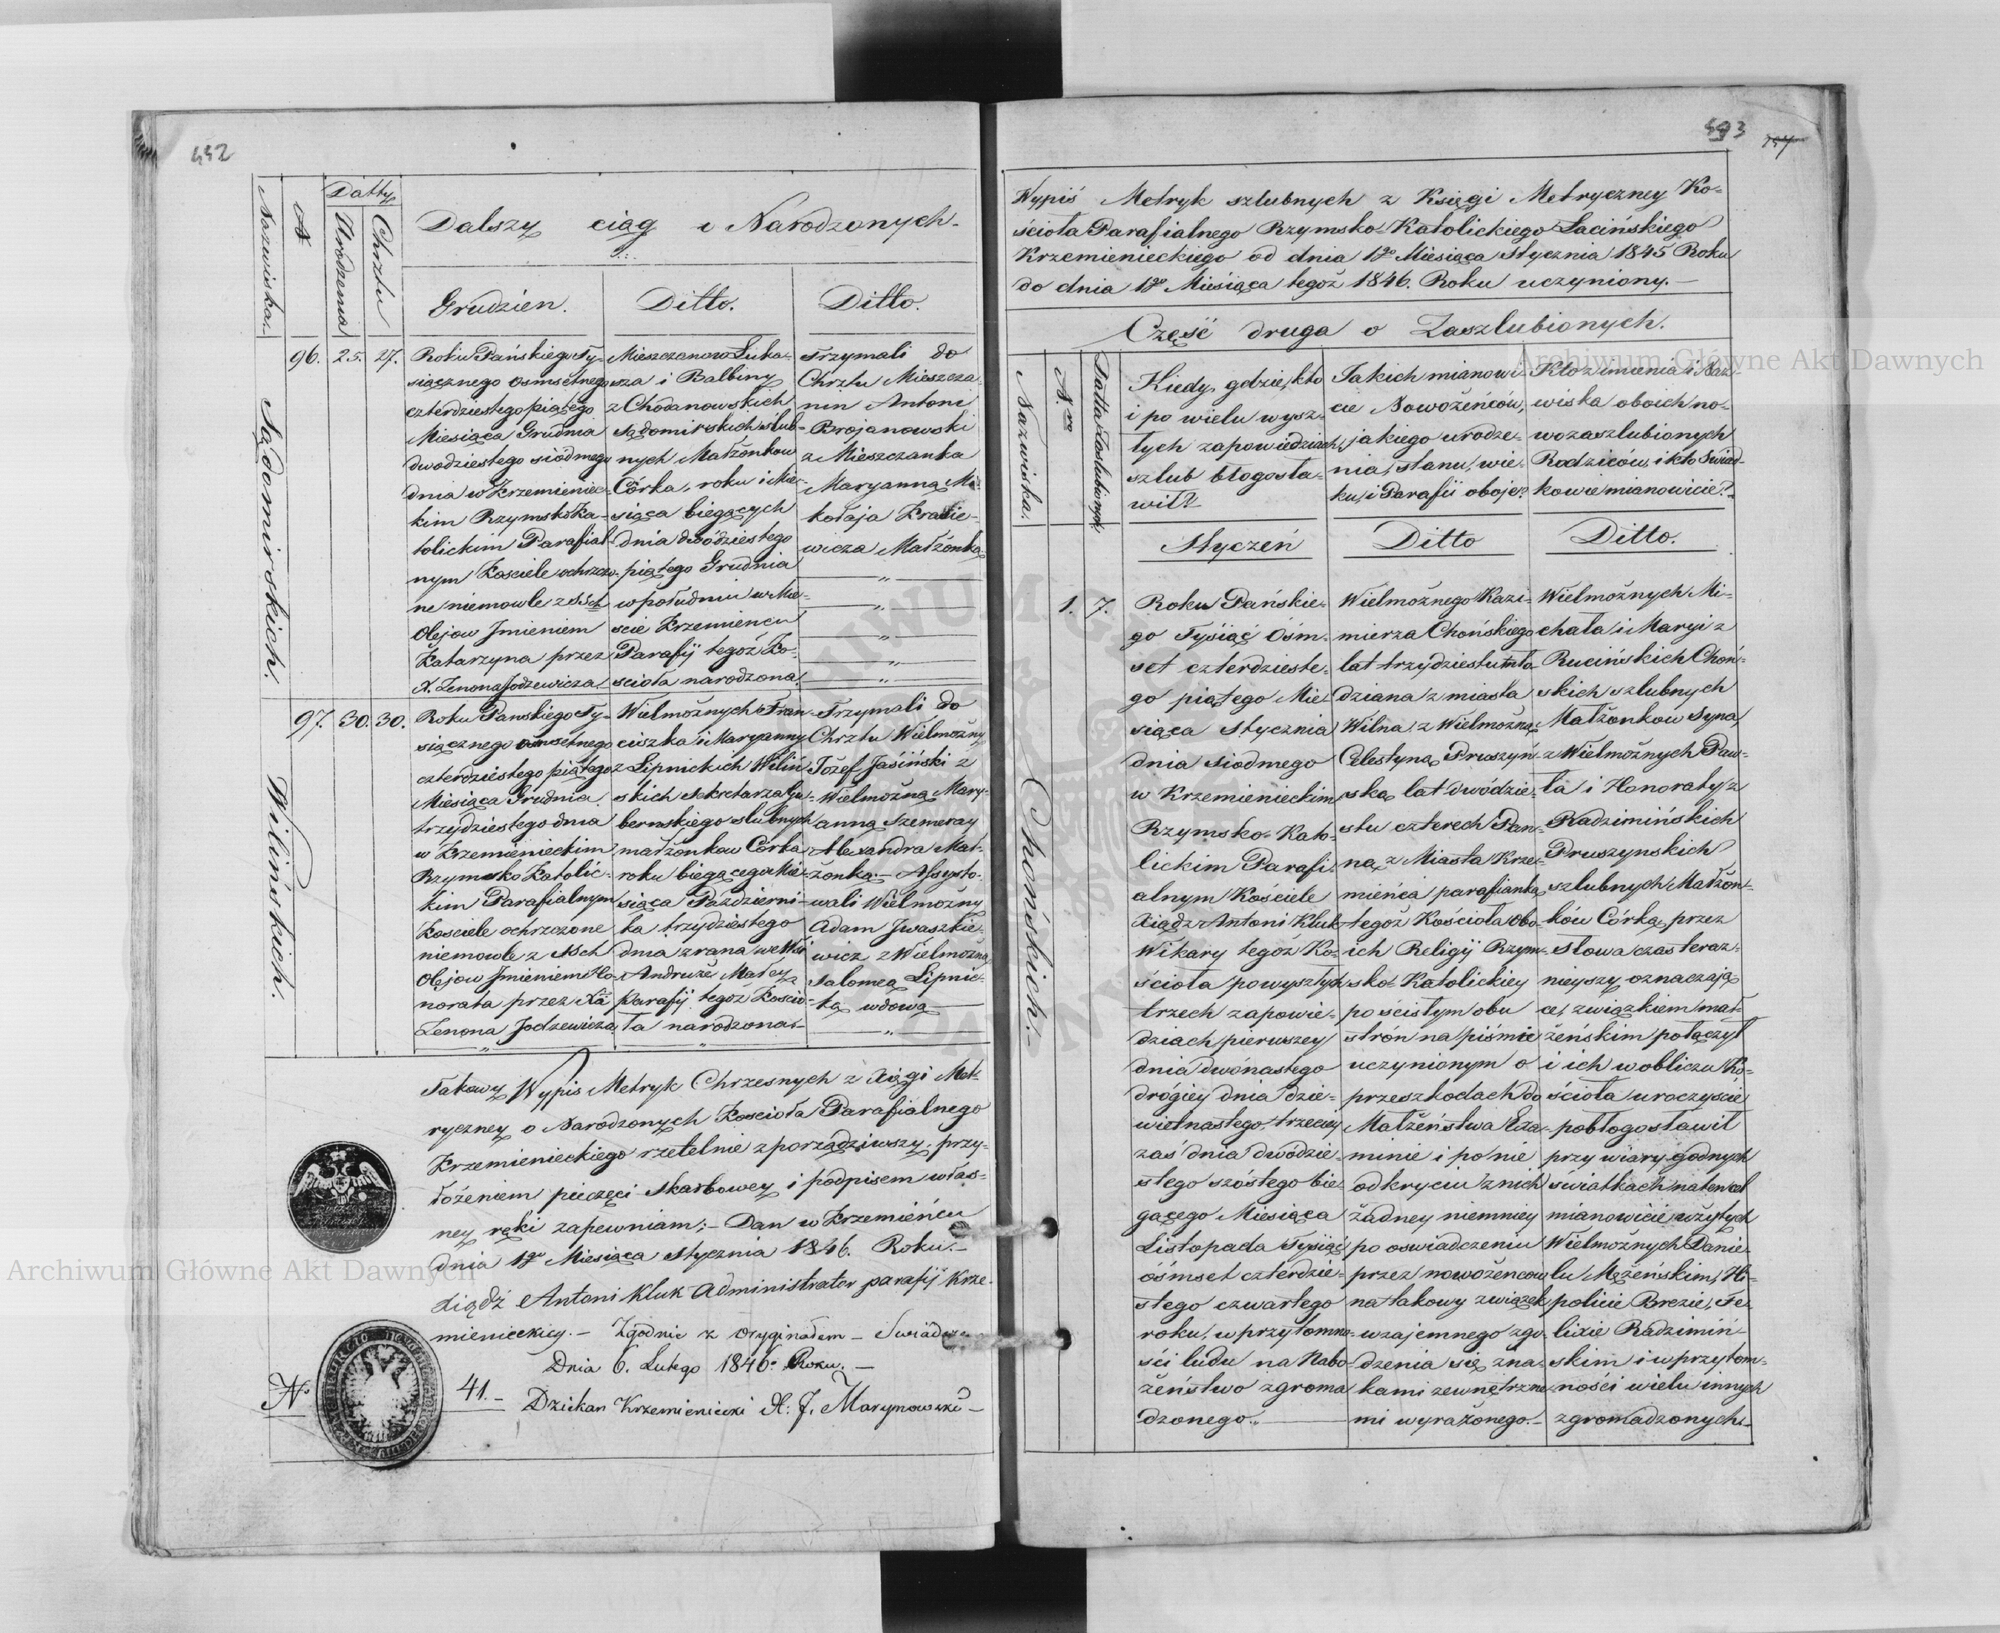 452
Datty
Nazwiska.
N
Urodzenia
Chrztu
Dalszy ciąg o Narodzonych.
Grudzien.
Ditto.
Ditto.
96. 25. 27.
Sądomirskich.
Roku Pańskiego Ty-
siącznego osmsetnego
czterdziestego piątego
Miesiąca Grudnia
dwodziestego siódmego
dnia w Krzemieniec-
kim Rzymsko Ka-
tolickim Parafial-
nym Kosciele ochrzczo-
ne niemowle z SSch
Olejow Jmieniem
Katarzyna przez
X. Zenona Jodzewicza
Mieszczanow Łuka-
sza i Balbiny
z Chodanowskich
Sądomirskich slub-
nych Małżonkow
Córka, roku i Mie-
siąca biegących
dnia dwódziestego
piątego Grudnia
w południu w Mie-
scie Krzemiencu
Parafij tegoż Ko-
scioła narodzona.
Trzymali do
Chrztu Mieszcza-
nin Antoni
Brojanowski
z Mieszczanka
Maryanną Mi-
kołaja
wicza Małżonką
97. 30. 30.
Wilińskich.
Roku Panskiego Ty-
siącznego osmsetnego
czterdziestego piątego
Miesiąca Grudnia
trzydziestego dnia
w Krzemienieckim
Rzymsko Katolic-
kim Parafialnym
Kosciele ochrzczone
niemowle z SSch
Olejow Jmieniem Ho-
norata przez Xa
Zenona Jodzewicza
Wielmożnych Fran-
ciszka i Maryanny
z Lipnickich Wiliń-
skich Sekretarza Gu-
bernskiego slubnych
małżonkow Córka
roku biegącego Mie-
siąca Październi-
ka trzydziestego
dnia zrana we Wsi
Andruże Małey
Parafij tegoż Koscio-
ła narodzona.
Trzymali do
Chrztu Wielmożny
Jozef Jasiński z
Wielmożną Mary-
anną Szemeray
Alexandra Mał-
żonką.— Assysto-
wali Wielmożny
Adam Jwaszkie-
wicz z Wielmożną
Salomeą Lipnic-
ką wdową
Takowy Wypis Metryk Chrzesnych z Xięgi Met-
ryczney o Narodzonych Koscioła Parafialnego
Krzemienieckiego rzetelnie zporządziwszy, przy-
łożeniem pieczęci Skarbowey i podpisem włas-
ney ręki zapewniam;— Dan w Krzemieńcu
dnia 1go Miesiąca Stycznia 1846. Roku.—
Xiądz Antoni Kluk Administrator parafij Krze-
mienieckiey.— Zgodnie z oryginałem — Swiádczę
Dnia 6. Lutego 1846o Roku.—
No 41.— Dziekan Krzemieniecki X. J. Marynowski—
493
Wypis Metryk szlubnych z Księgi Metryczney Ko-
ścioła Parafialnego Rzymsko-Katolickiego Łacińskiego
Krzemienieckiego od dnia 1go Miesiąca Stycznia 1845 Roku
do dnia 1go Miesiąca tegoż 1846. Roku uczyniony.—
Część druga o Zaszlubionych.
Nazwiska.
N.ro
Datta Zaslubionych
Kiedy, gdzie, kto
i po wielu wysz-
łych zapowiedziach
szlub błogosła-
wił?
Jakich mianowi-
cie Nowożeńców,
jakiego urodze-
nia, stanu, wie-
ku, i Parafii oboje?
Kto z imienia i Naz-
wiska oboich no-
wozaszlubionych
Rodziców, i kto Świad-
kowie mianowicie?
Styczeń
Ditto
Ditto.
1. 7.
Chońskich.
Roku Pańskie-
go Tysiąc Óśm-
set czterdzieste-
go piątego Mie-
siąca Stycznia
dnia siodmego
w Krzemienieckim
Rzymsko-Kato-
lickim Parafi-
alnym Kościele
Xiądz Antoni Kluk
Wikary tegoż Ko-
ścioła po wyszłych
trzech zapowie-
dziach pierwszey
dnia dwónastego
drógiey dnia dzie-
wietnastego trzeciey
zaś dnia dwódzie-
stego szóstego bie-
gącego Miesiąca
Listopada Tysiąć
óśmset czterdzie-
stego czwartego
roku, w przytomno-
ści ludu na Nabo-
żeństwo zgroma-
dzonego.
Wielmożnego Kazi-
mierza Chońskiego
lat trzydziestu mło-
dziana z miasta
Wilna, z Wielmożną
Celestyną Pruszyń-
ską lat dwódzie-
stu czterech Pan-
ną z Miasta Krze-
mieńca parafianką
tegoż Kościoła obo-
ich Religij Rzym-
sko-Katolickiey
po ścisłym obu
strón na piśmie
uczynionym o
przeszkodach do
Małżeństwa Exa-
minie i po nie
odkryciu z nich
żadney niemniey
po oswiadczeniu
przez nowożencow
na takowy związek
wzajemnego zgo-
dzenia się zna-
kami zewnętrzne-
mi wyrażonego.—
Wielmożnych Mi-
chała i Maryi z
Rucińskich Choń-
skich szlubnych
Małżonkow Syna,
z Wielmożnych Paw-
ła i Honoraty z
Radzimińskich
Pruszynskich
szlubnych Małżon-
ków Córką, przez
słowa czas teraz-
nieyszy oznaczają-
ce, związkiem mał-
żeńskim połączył
i ich w obliczu Ko-
ścioła uroczyscie
pobłogosławił
przy wiary godnych
swiatkach natenczas
mianowicie użytych
Wielmożnych Danie-
lu Mężeńskim, Hi-
policie Brezie, Fe-
lixie Radzimiń-
skim i w przytom-
ności wielu innych
zgromadzonych.
Archiwum Główne Akt Dawnych
Archiwum Główne Akt Dawnych